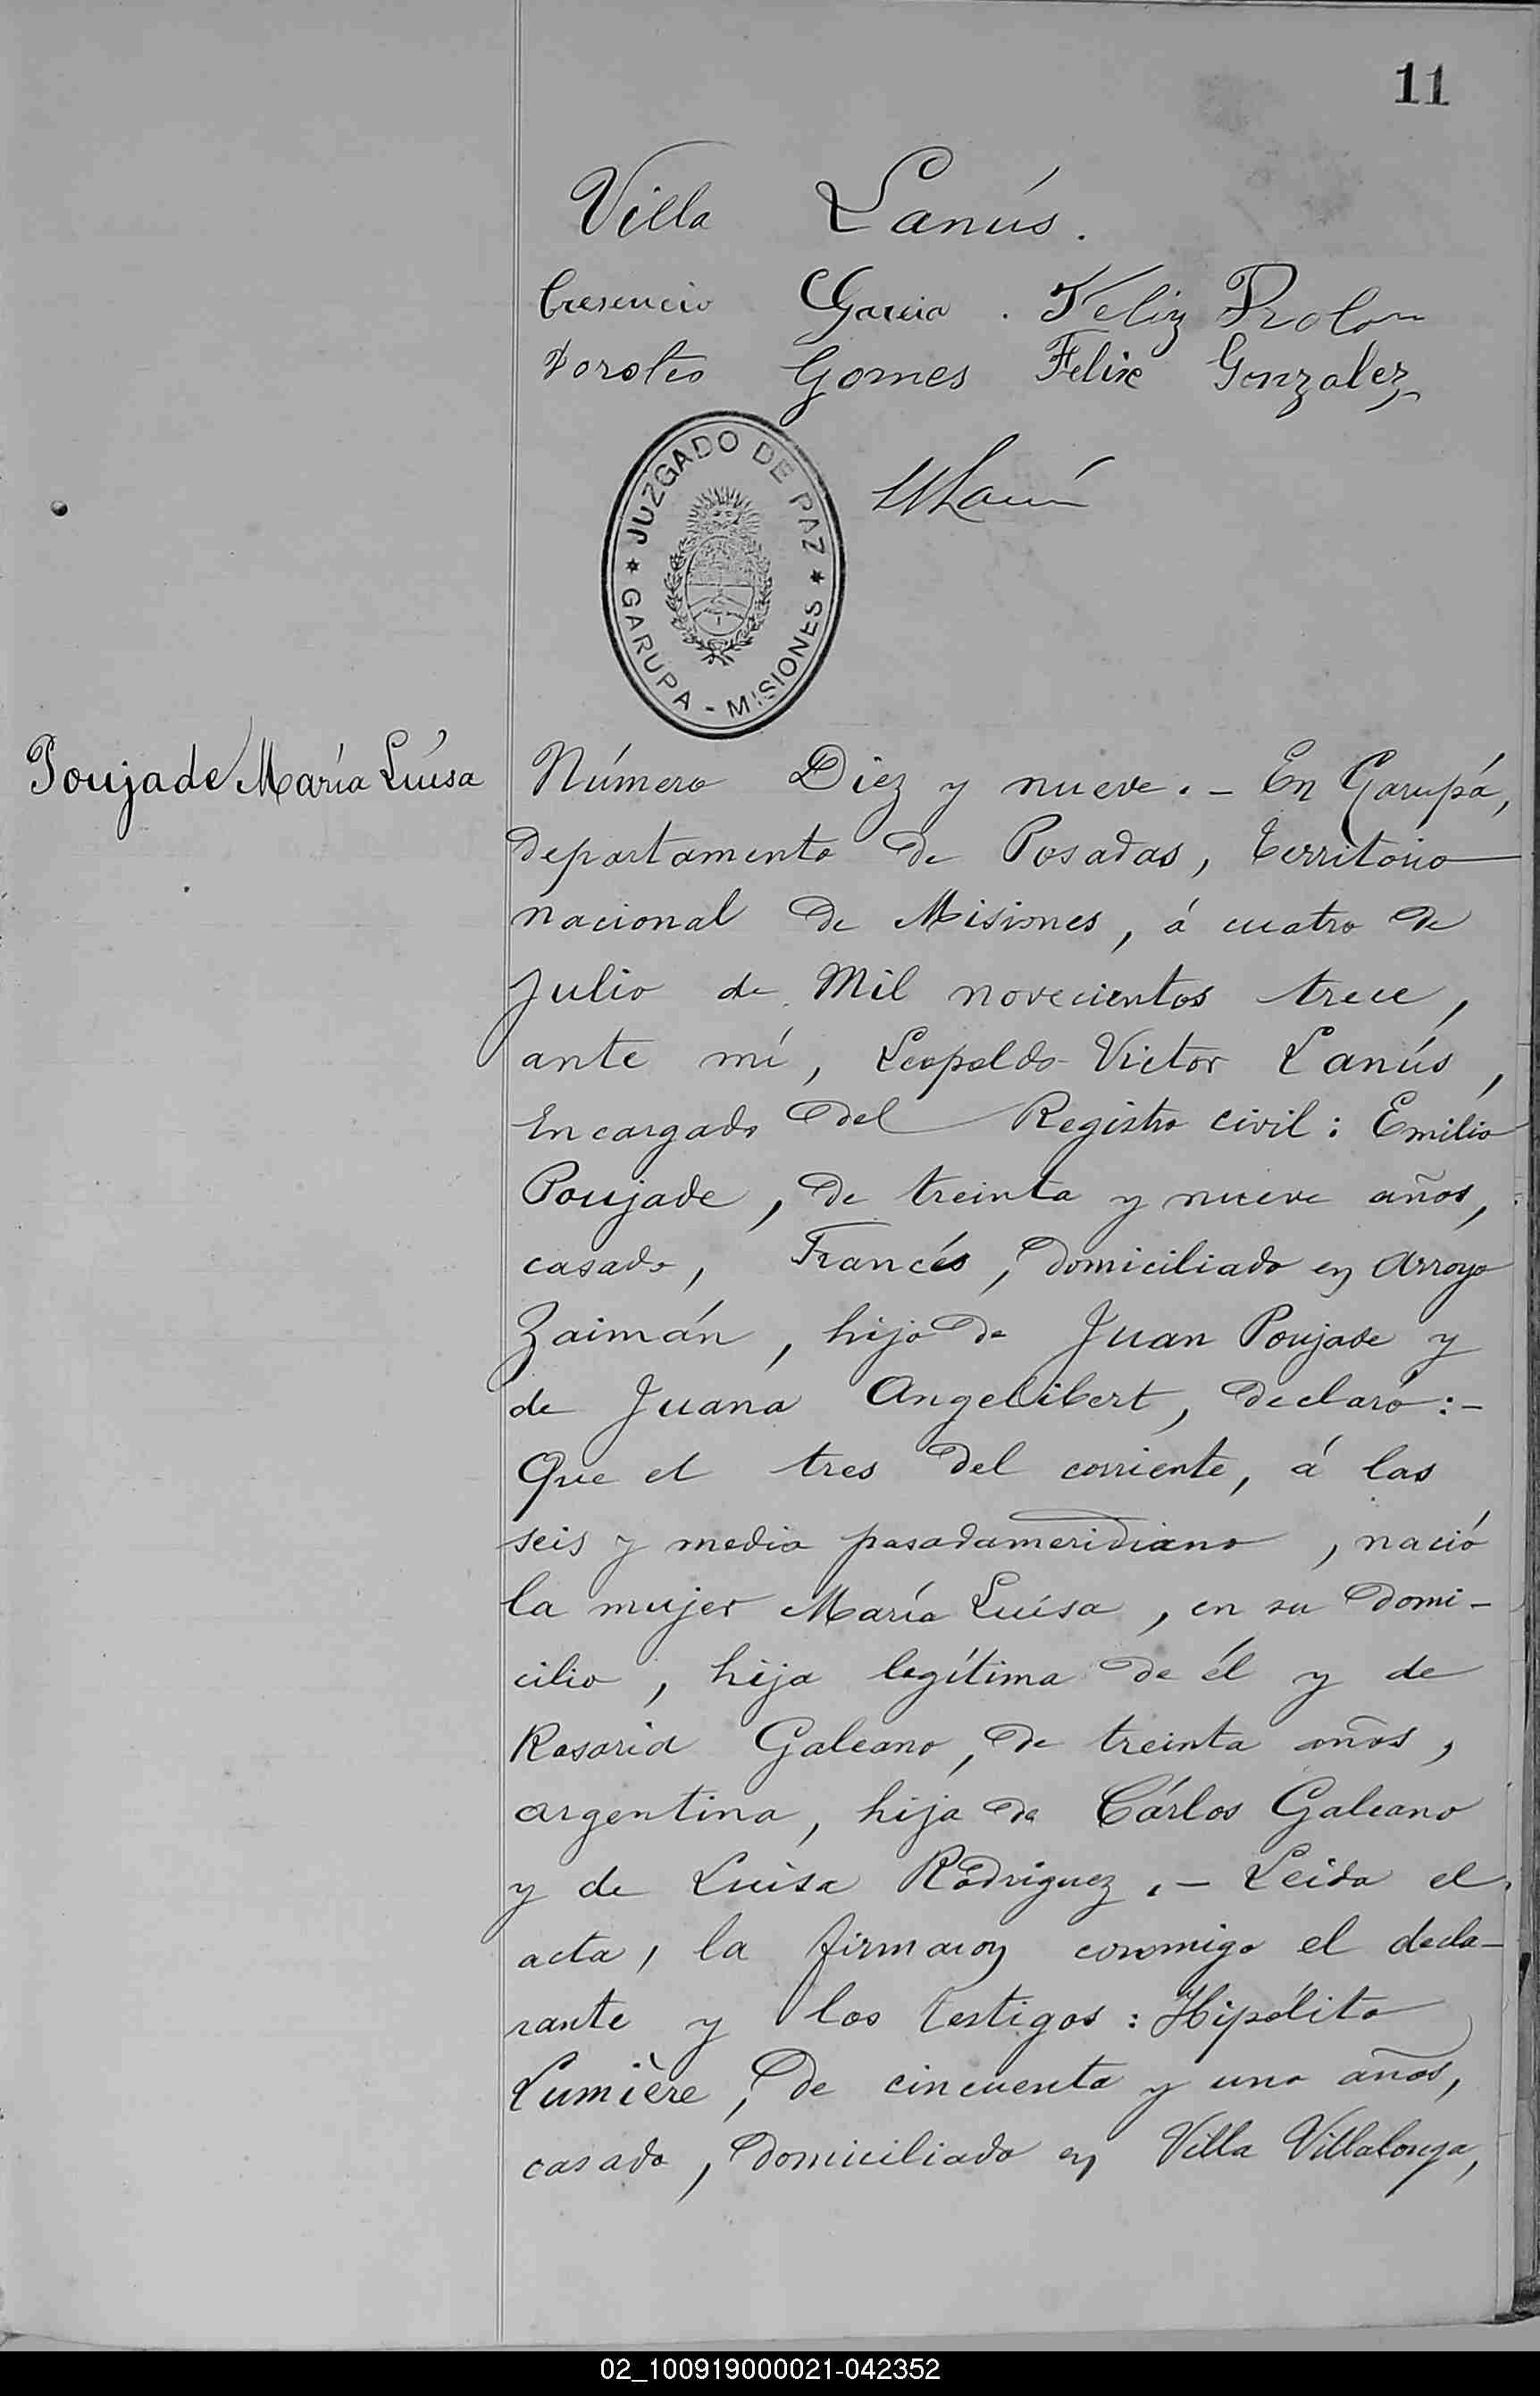 11
Villa Lanús.
Cresencio Garcia. Feliz Frolon
Doroteo Gomes Felix Gonzalez
JUZGADO DE PAZ
GARUPA - MISIONES
Poujade María Luísa
Número Diez y nueve. - En Garupá,
departamento de Posadas, territorio
nacional de Misiones, á cuatro de
Julio de Mil novecientos trece,
ante mí, Leopoldo Victor Lanús,
Encargado del Registro civil: Emilio
Poujade, de treinta y nueve años,
casado, Francés, domiciliado en Arroyo
Zaimán, hijo de Juan Poujade y
de Juana Angelibert, declaró:-
Que el tres del corriente, á las
seis y media pasadameridiano, nació
la mujer María Luísa, en su domi-
cilio, hija legítima de él y de
Rosaria Galeano, de treinta años,
argentina, hija de Cárlos Galeano
y de Luisa Rodriguez. - Leida el
acta, la firmaron conmigo el decla-
rante y los testigos: Hipólito
Lumière, de cincuenta y uno años,
casado, domiciliado en Villa Villalonga,
02_100919000021-042352